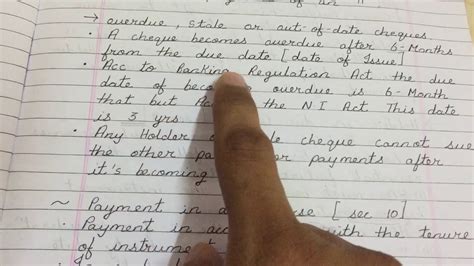 of an
→ overdue, stale or out-of-date cheques
• A cheque becomes overdue after 6-Months
from the due date [date of Issue]
• Acc to Banking Regulation Act the due
date of overdue is 6-Month
that but the N I Act This date
is 3 yrs
• Any Holder cheque cannot sue
the other payments after
it's becoming
~ Payment in [sec 10]
• Payment in with the tenure
of instrument